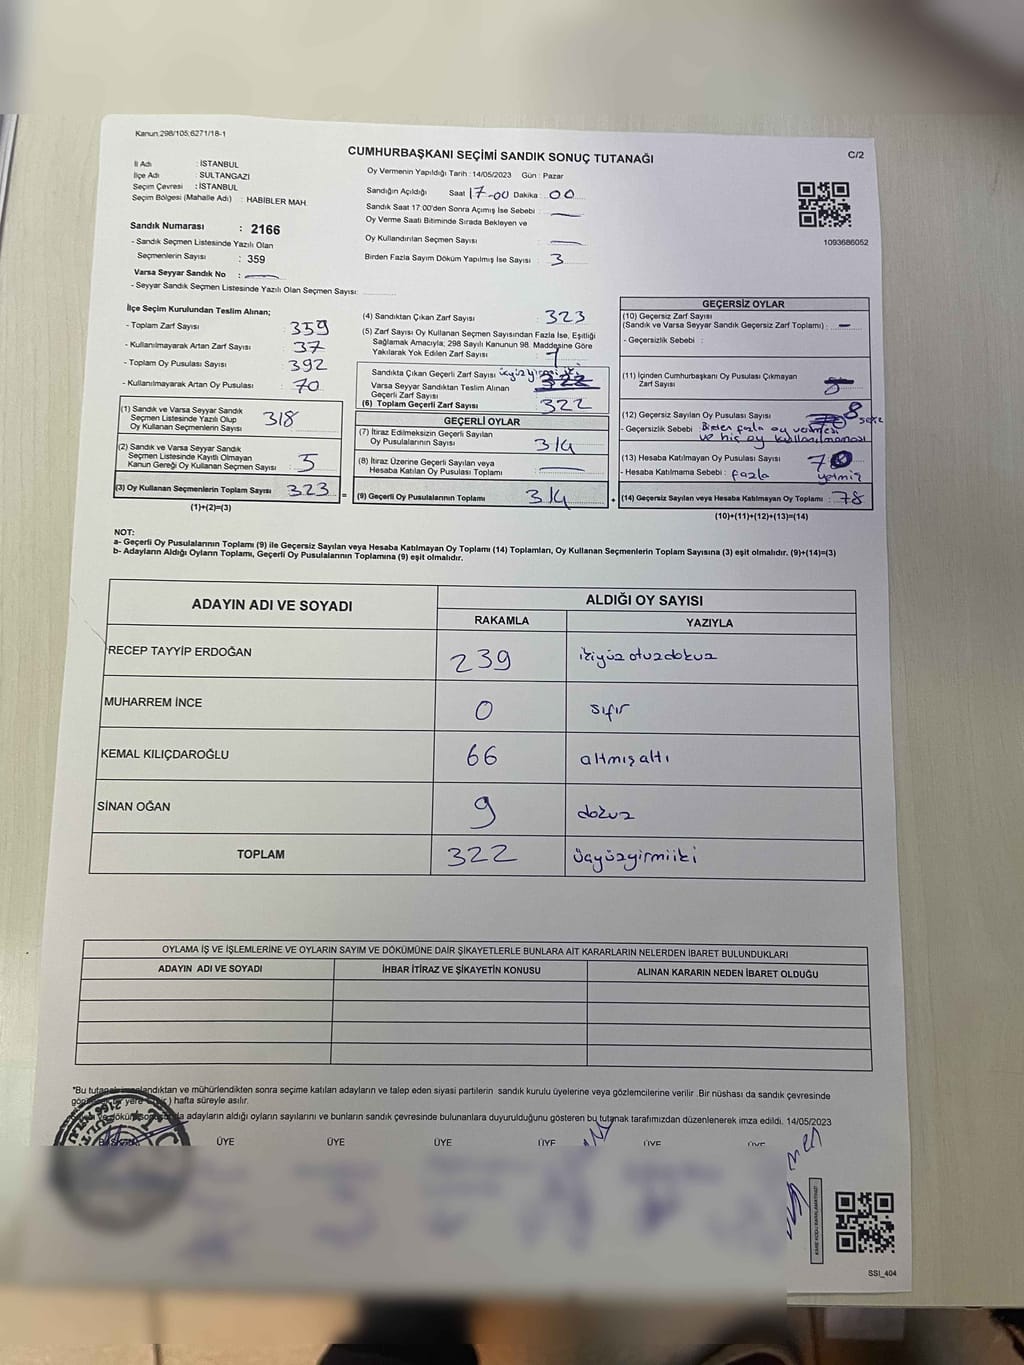 Kanun.298/105,6271/18-1
CUMHURBAŞKANI SEÇİMİ SANDIK SONUÇ TUTANAĞI
C/2
İl Adı : İSTANBUL
İlçe Adı : SULTANGAZİ
Seçim Çevresi : İSTANBUL
Seçim Bölgesi (Mahalle Adı) : HABİBLER MAH.
Sandık Numarası : 2166
- Sandık Seçmen Listesinde Yazılı Olan
Seçmenlerin Sayısı : 359
Varsa Seyyar Sandık No :
- Seyyar Sandık Seçmen Listesinde Yazılı Olan Seçmen Sayısı:
Oy Vermenin Yapıldığı Tarih : 14/05/2023 Gün : Pazar
Sandığın Açıldığı Saat 17-00 Dakika : 00
Sandık Saat 17:00'den Sonra Açımış İse Sebebi :
Oy Verme Saati Bitiminde Sırada Bekleyen ve
Oy Kullandırılan Seçmen Sayısı :
Birden Fazla Sayım Döküm Yapılmış İse Sayısı : 3
1093686052
İlçe Seçim Kurulundan Teslim Alınan;
- Toplam Zarf Sayısı : 359
- Kullanılmayarak Artan Zarf Sayısı : 37
- Toplam Oy Pusulası Sayısı : 392
- Kullanılmayarak Artan Oy Pusulası : 70
(1) Sandık ve Varsa Seyyar Sandık
Seçmen Listesinde Yazılı Olup
Oy Kullanan Seçmenlerin Sayısı : 318
(2) Sandık ve Varsa Seyyar Sandık
Seçmen Listesinde Kayıtlı Olmayan
Kanun Gereği Oy Kullanan Seçmen Sayısı : 5
(3) Oy Kullanan Seçmenlerin Toplam Sayısı : 323
(1)+(2)=(3)
(4) Sandıktan Çıkan Zarf Sayısı : 323
(5) Zarf Sayısı Oy Kullanan Seçmen Sayısından Fazla İse, Eşitliği
Sağlamak Amacıyla; 298 Sayılı Kanunun 98. Maddesine Göre
Yakılarak Yok Edilen Zarf Sayısı : 1
Sandıkta Çıkan Geçerli Zarf Sayısı : üçyüzyirmiiki
Varsa Seyyar Sandıktan Teslim Alınan
Geçerli Zarf Sayısı
(6) Toplam Geçerli Zarf Sayısı : 322
GEÇERLİ OYLAR
(7) İtiraz Edilmeksizin Geçerli Sayılan
Oy Pusulalarının Sayısı : 314
(8) İtiraz Üzerine Geçerli Sayılan veya
Hesaba Katılan Oy Pusulası Toplamı :
= (9) Geçerli Oy Pusulalarının Toplamı : 314
GEÇERSİZ OYLAR
(10) Geçersiz Zarf Sayısı
(Sandık ve Varsa Seyyar Sandık Geçersiz Zarf Toplamı) : -
- Geçersizlik Sebebi :
(11) İçinden Cumhurbaşkanı Oy Pusulası Çıkmayan
Zarf Sayısı :
(12) Geçersiz Sayılan Oy Pusulası Sayısı : 8 sekiz
- Geçersizlik Sebebi : Birden fazla oy verilmesi
ve hiç oy kullanılmaması
(13) Hesaba Katılmayan Oy Pusulası Sayısı : 70
- Hesaba Katılmama Sebebi : fazla yetmiş
+ (14) Geçersiz Sayılan veya Hesaba Katılmayan Oy Toplamı : 78
(10)+(11)+(12)+(13)=(14)
NOT:
a- Geçerli Oy Pusulalarının Toplamı (9) ile Geçersiz Sayılan veya Hesaba Katılmayan Oy Toplamı (14) Toplamları, Oy Kullanan Seçmenlerin Toplam Sayısına (3) eşit olmalıdır. (9)+(14)=(3)
b- Adayların Aldığı Oyların Toplamı, Geçerli Oy Pusulalarının Toplamına (9) eşit olmalıdır.
ADAYIN ADI VE SOYADI
ALDIĞI OY SAYISI
RAKAMLA YAZIYLA
RECEP TAYYİP ERDOĞAN 239 ikiyüzotuzdokuz
MUHARREM İNCE 0 sıfır
KEMAL KILIÇDAROĞLU 66 altmışaltı
SİNAN OĞAN 9 dokuz
TOPLAM 322 üçyüzyirmiiki
OYLAMA İŞ VE İŞLEMLERİNE VE OYLARIN SAYIM VE DÖKÜMÜNE DAİR ŞİKAYETLERLE BUNLARA AİT KARARLARIN NELERDEN İBARET BULUNDUKLARI
ADAYIN ADI VE SOYADI İHBAR İTİRAZ VE ŞİKAYETİN KONUSU ALINAN KARARIN NEDEN İBARET OLDUĞU
"Bu tutanak imzalandıktan ve mühürlendikten sonra seçime katılan adayların ve talep eden siyasi partilerin sandık kurulu üyelerine veya gözlemcilerine verilir. Bir nüshası da sandık çevresinde
bir yere ) hafta süreyle asılır.
adayların aldığı oyların sayılarını ve bunların sandık çevresinde bulunanlara duyurulduğunu gösteren bu tutanak tarafımızdan düzenlenerek imza edildi. 14/05/2023
BAŞKAN ÜYE ÜYE ÜYE ÜYE ÜYE ÜYE
SSI_404